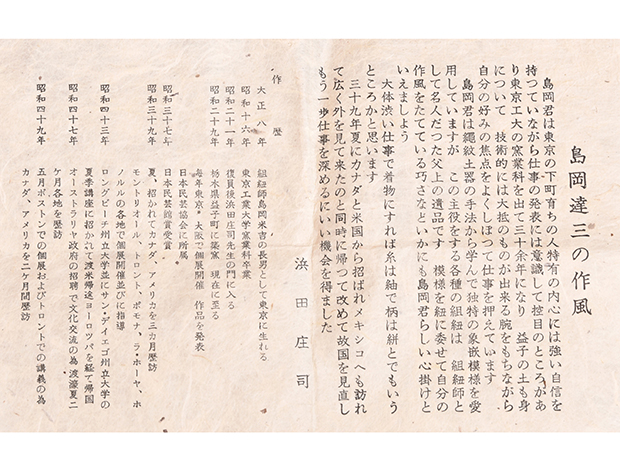 島岡達三の作風
島岡君は東京の下町育ちの人特有の内心には強い自信を
持つていながら仕事の発表には意識して控目のところがあ
り東京工大の窯業科を出て三十余年になり　益子の土も身
について　技術的には大抵のものが出来る腕をもちながら
自分の好みの焦点をよくしぼつて仕事を押えています
島岡君は縄紋土器の手法から学んで独特の象嵌模様を愛
用していますが　この主役をする各種の組紐は　組紐師と
して名人だつた父上の遺品です　模様を紐に委せて自分の
作風をたてている巧さなどいかにも島岡君らしい心掛けと
いえましょう
大体渋い仕事で着物にすれば糸は紬で柄は絣とでもいう
ところかと思います
三十九年夏にカナダと米国から招ばれメキシコへも訪れ
て広く外を見て来たのと同時に帰つて改めて故国を見直し
もう一歩仕事を深めるにいい機会を得ました
浜田庄司
作歴
大正八年　組紐師島岡米吉の長男として東京に生れる
昭和十六年　東京工業大学窯業科卒業
昭和二十一年　復員後浜田庄司先生の門に入る
昭和二十九年　栃木県益子町に築窯　現在に至る
毎年東京、大阪で個展開催　作品を発表
日本民芸協会に所属
昭和三十七年　日本民芸館賞受賞
昭和三十九年　夏、招かれてカナダ、アメリカを三カ月歴訪
モントリオール、トロント、ポモナ、ラ・ホーヤ、ホ
ノルルの各地で個展開催並びに指導
昭和四十三年　ロングビーチ州立大学並にサン・デイエゴ州立大学の
夏季講座に招かれて渡米帰途ヨーロツパを経て帰国
昭和四十七年　オーストラリヤ政府の招聘で文化交流の為　渡濠夏二
ケ月各地を歴訪
昭和四十九年　五月ボストンでの個展およびトロントでの講義の為
カナダ、アメリカを二ケ月間歴訪